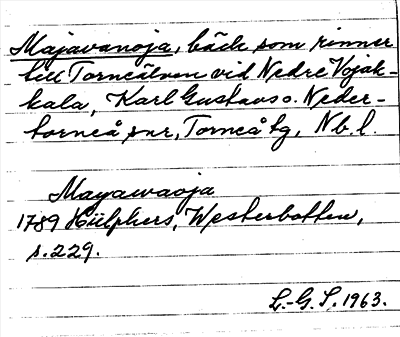 Majavanoja, bäck som rinner
till Torneälven vid Nedre Vojak-
kala, Karl Gustavs o. Neder-
torneå snr, Torneå tg, Nb. l.
Mayawaoja
1789 Hülphers, Westerbotten,
s. 229.
L.-G. S. 1963.